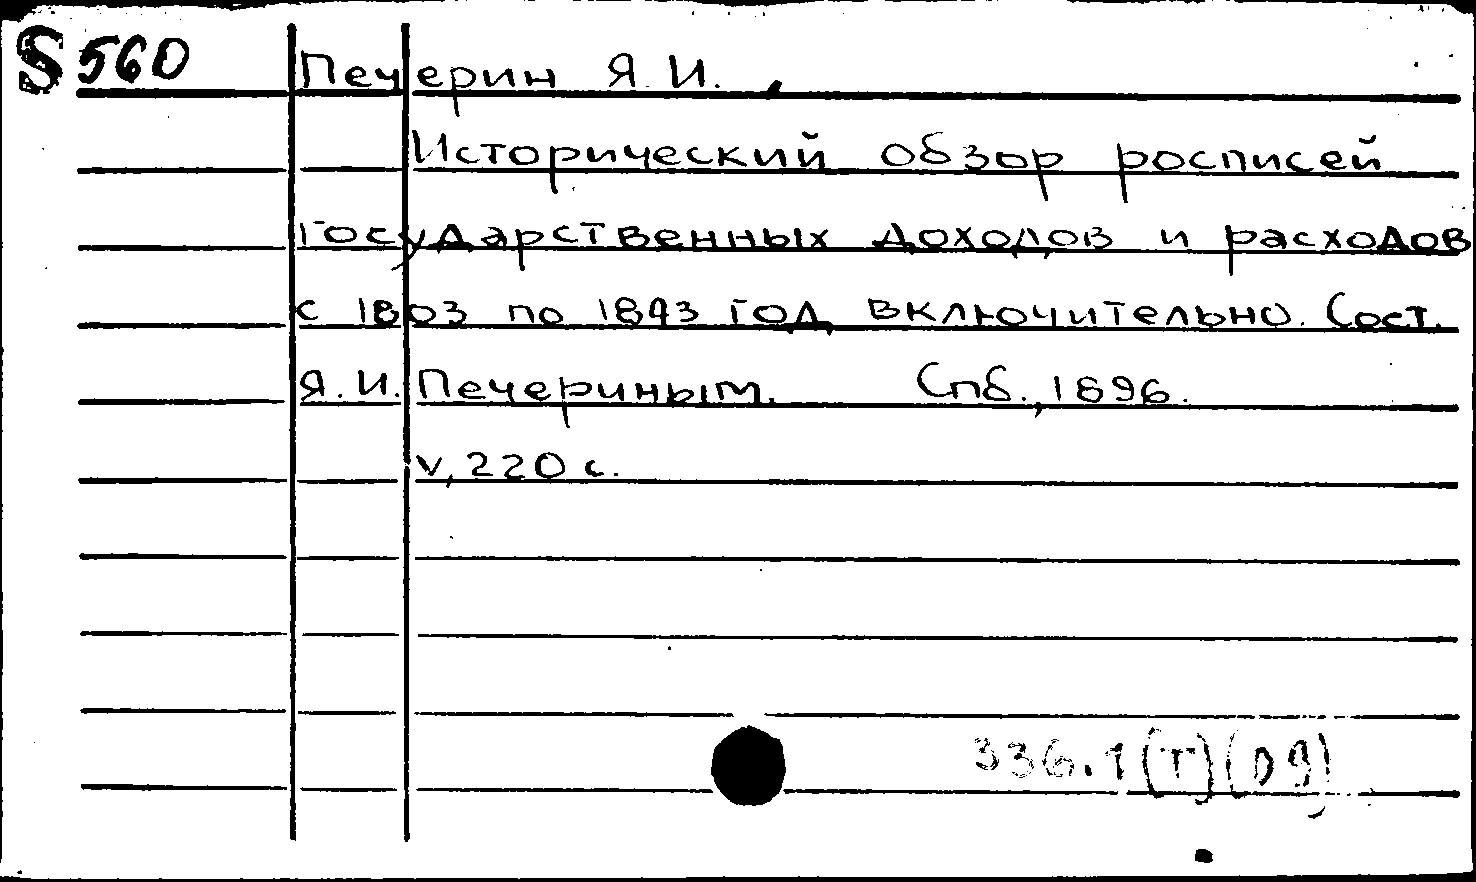 S 560 Печерин Я. И.
Исторический обзор росписей
государственных доходов и расходов
с 1803 по 1843 год включительно. Сост.
Я. И. Печериным. Спб., 1896.
V, 220 с.
336.1(Т)(09)